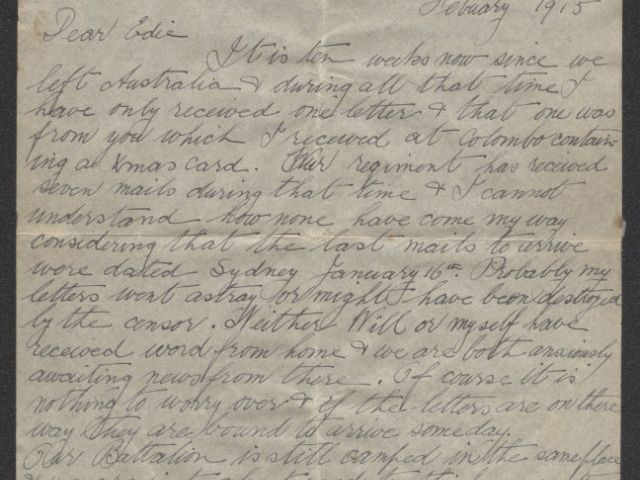 Febuary 1915
Dear Edie
It is ten weeks now since we
left Australia & during all that time I
have only received one letter & that one was
from you which I received at Colombo contain-
ing a Xmas card. Our regiment has received
seven mails during that time & I cannot
understand how none have come my way
considering that the last mails to arrive
were dated Sydney January 16th. Probably my
letters went astray or might have been destroyed
by the censor. Neither Will or myself have
received word from home & we are both anxiously
awaiting news from there. Of course it is
nothing to worry over & if the letters are on there
way they are bound to arrive someday.
Our Battalion is still camped in the same place